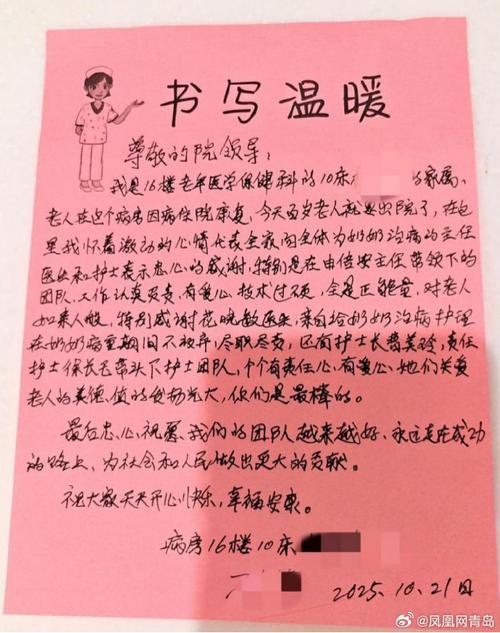 书写温暖
尊敬的院领导：
我是16楼老年医学保健科的10床 的家属。
老人在这个病房因病住院康复，今天百岁老人就要出院了，在这
里我怀着激动的心情代表全家向全体为奶奶治病的主任
医生和护士表示忠心的感谢，特别是在申倍安主任带领下的
团队，工作认真负责，有爱心，技术过硬，全是正能量，对老人
如亲人般，特别感谢花晓敏医生，亲自给奶奶治病护理
在奶奶病重期间不放弃，尽职尽责，还有护士长费美玲，责任
护士 带头下护士团队，个个有责任心，有爱心，她们关爱
老人的美德，值的发扬光大，你们是最棒的。
最后忠心祝愿我们的团队越来越好，永远走在成功
的路上，为社会和人民做出更大的贡献。
祝大家天天开心快乐，幸福安康。
病房16楼10床
2025.10.21日
@凤凰网青岛